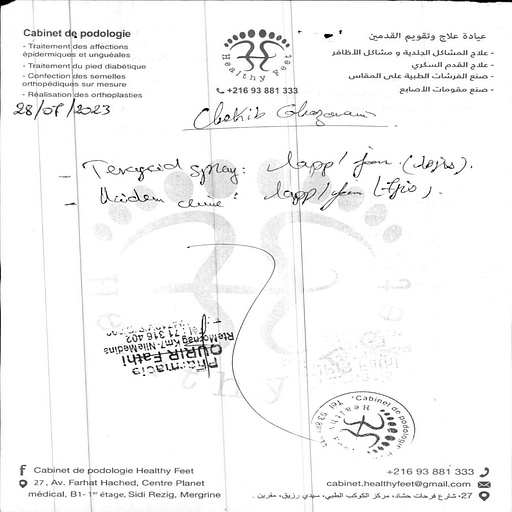 Cabinet de podologie
- Traitement des affections
épidermiques et unguéales
- Traitement du pied diabétique
- Confection des semelles
orthopédiques sur mesure
- Réalisation des orthoplasties
Healthy Feet
+216 93 881 333
عيادة علاج وتقويم القدمين
- علاج المشاكل الجلدية و مشاكل الأظافر
- علاج القدم السكري
- صنع الفرشات الطبية على المقاس
- صنع مقومات الأصابع
28/07/2023
- spray: 1 app/ jour
- 1 app/ jour
Pharmacie
OURIR Fathi
Rte Mornag Km7-Nile Medina
71 316 402
Cabinet de podologie
Healthy
Cabinet de podologie Healthy Feet
27, Av. Farhat Hached, Centre Planet
médical, B1- 1er étage, Sidi Rezig, Mergrine
+216 93 881 333
cabinet.healthyfeet@gmail.com
27، شارع فرحات حشاد، مركز الكوكب الطبي، سيدي رزيق، مقرين.